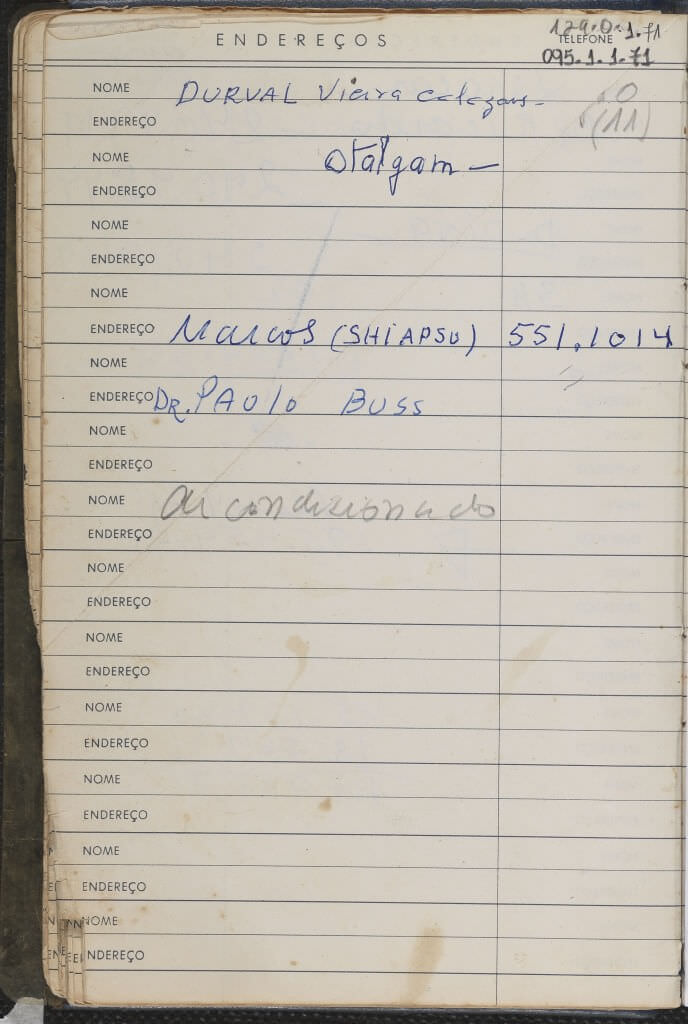 129.0.1.71
ENDEREÇOS TELEFONE
095.1.1.71
NOME DURVAL Vieira calazans - 0
ENDEREÇO (11)
NOME Otalgam -
ENDEREÇO
NOME
ENDEREÇO
NOME
ENDEREÇO Marcos (SHIAPSU) 551.1014
NOME
ENDEREÇO DR. PAULO BUSS
NOME
ENDEREÇO
NOME ar condicionado
ENDEREÇO
NOME
ENDEREÇO
NOME
ENDEREÇO
NOME
ENDEREÇO
NOME
ENDEREÇO
NOME
ENDEREÇO
NOME
ENDEREÇO